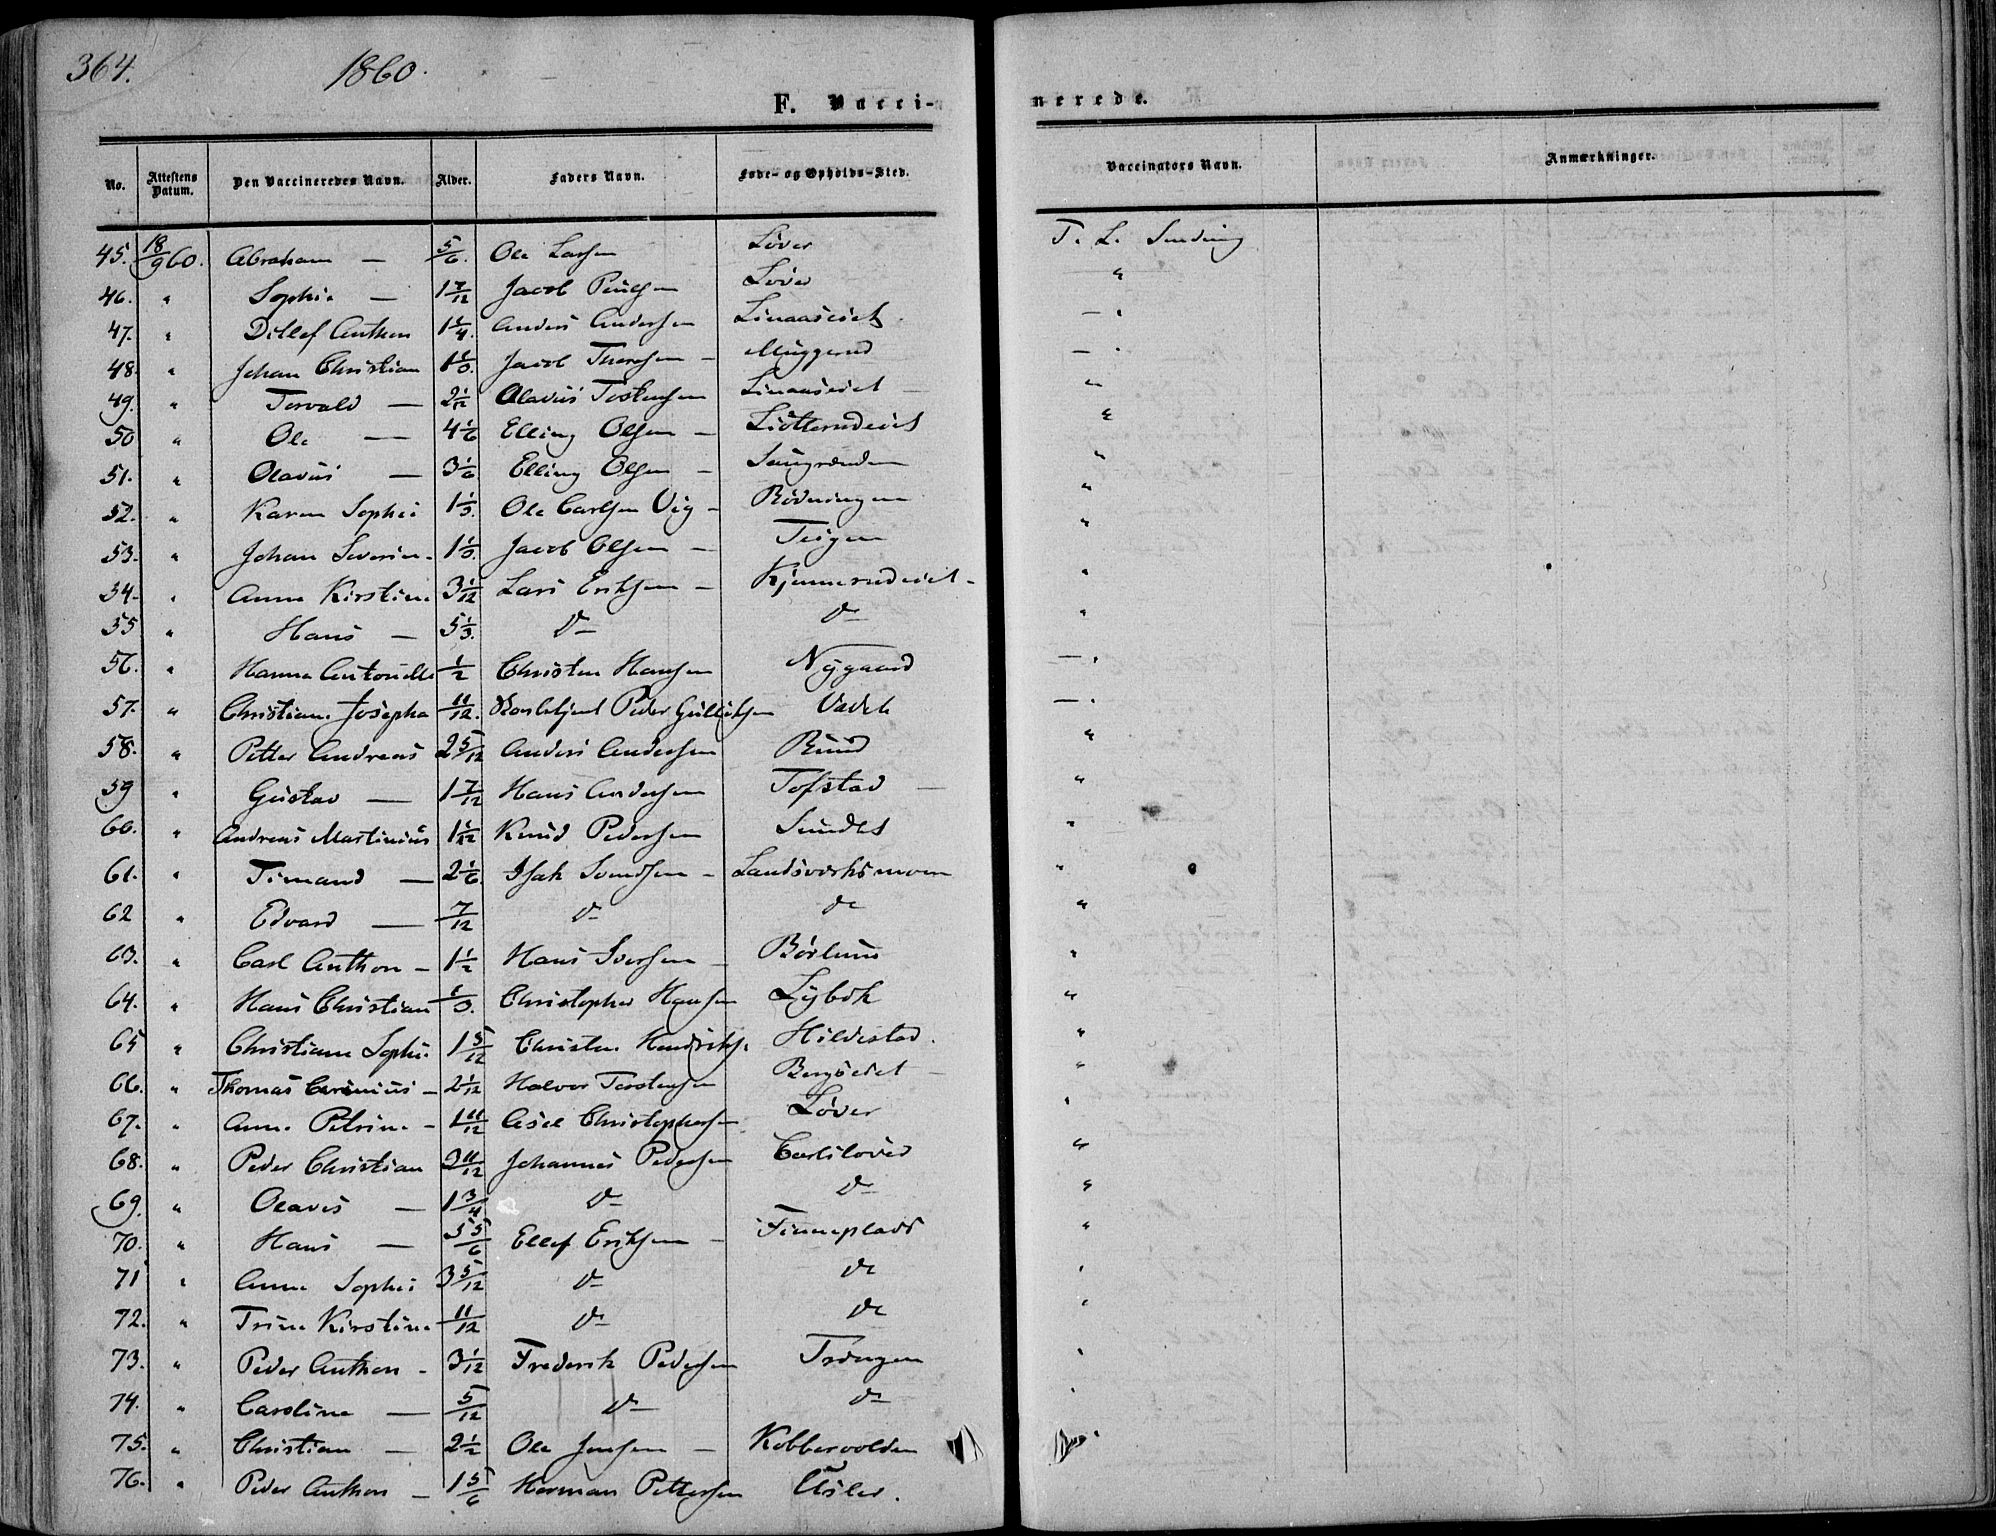 364. 1860.
F. Vacci- nerede.
No. Attestens Datum. Den Vaccineredes Navn. Alder. Faders Navn. Føde- og Opholds-Sted. Vaccinators Navn. Anmærkninger.
45. 18/9 60. Abraham — 5/6. Ole Larsen Løver T. L. Sending
46. " Sophie — 1 7/12 Jacob Løver "
47. " Ditlef Anthon 1 1/4. Anders Andersen Linaaseiet. — "
48. " Johan Christian 1 1/3. Jacob Thoresen — Muggerud — "
49. " Torvald — 2 1/12 Olavus Linaaseiet — "
50 " Ole — 4 1/6 Elling Olsen — "
51. " Olavus — 3 1/6 Elling Olsen — "
52. " Karen Sophie 1 1/3. Ole Carlsen Vig — Rødningen "
53. " Johan Severin. 1 1/3. Jacob Olsen — Teigen "
54. " Anne Kirstine 3 1/12 Lars Eriksen — Kjennerudeiet — "
55 " Hans — 5 1/3. Do Do "
56. " Hanna Antonette 1/2 Christen Hansen Nygaard — "
57. " Christian. Josepha 11/12. Peder Gulliksen Vadet — "
58. " Petter Andreas 2 5/12 Anders Andersen Ruud "
59 " Gustav — 1 7/12 Hans Andersen Tofstad — "
60. " Andreas Martinius 1 1/12 Knud Pedersen Sundet "
61. " Timand — 2 1/6. Isak Svendsen — Landsværksmoen "
62 " Edvard — 7/12 Do Do "
63. " Carl Anthon — 1 1/2 Hans Iversen — "
64. " Hans Christian 1/3. Christopher Hansen Lybek "
65 " Christiane Sophie 1 5/12 Christen Hendriks. Hildestad. "
66. " Thomas — 2 1/12 Halvor Torstensen Bergseiet — "
67. " Anne Petrine — 1 11/12 Axel Christophersen Løver "
68. " Peder Christian 2 11/12 Johannes Pedersen "
69. " Olaves — 1 3/4 Do Do "
70. " Hans — 5 5/6 Ellef Eriksen — Finneplads "
71 " Anne Sophie 3 5/12 Do Do "
72. " Trine Kirstine 11/12 Do Do "
73. " Peder Anthon — 3 1/12 Frederik Pedersen Trongen "
74. " Caroline — 5/12 Do Do "
75. " Christian — 2 1/2 Ole Jensen — Kobbervolden "
76. " Peder Anthon — 1 5/6 Herman Pettersen